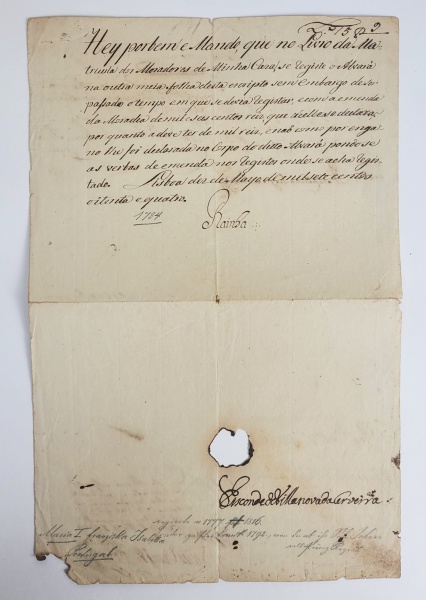 Hey por bem e Mando, que no Livro da Ma-
tricula dos Moradores de Minha Caza, se registe o Alvará
na outra meia folha desta escripto sem embargo de ser
passado o tempo em que se devia registar, e com a emenda
da Moradia de mil e seis centos reis, que nelle se declara,
por quanto a deve ter de mil reis, e naõ como por enga-
no lhe foi declarada no Corpo do ditto Alvará pondo-se
as verbas de emenda nos registos onde se acha regis-
tado. Lisboa dez de Mayo de mil sete centos
oitenta e quatro.
1784
Rainha
Bisconde de Villanova da Cerveira
1777 1816.
Maria I Franziska Isabella 1792,
Portugal